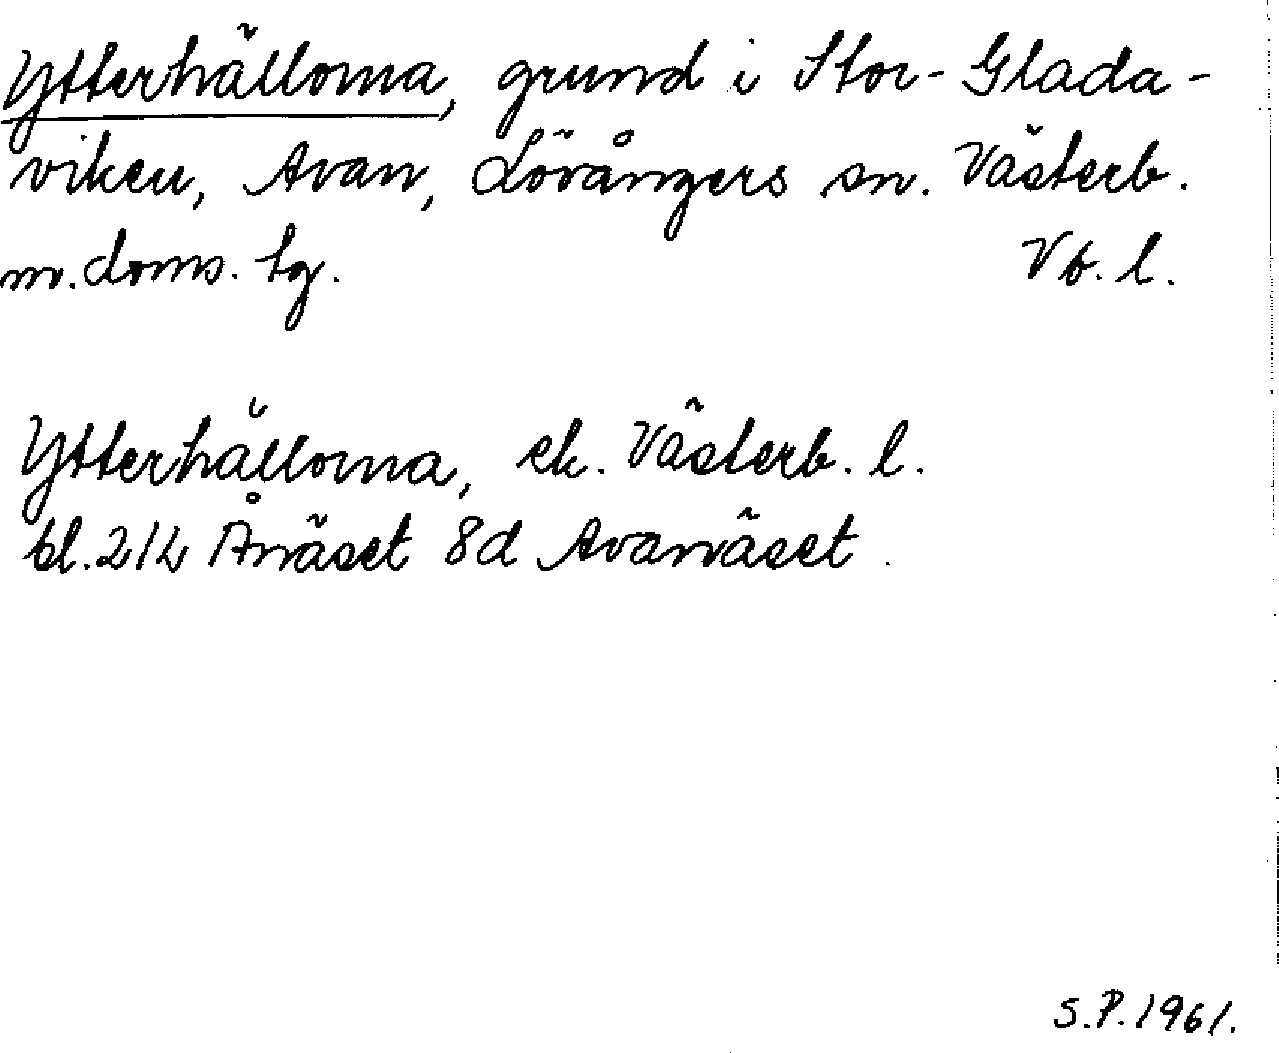 Ytterhällorna, grund i Stor-Glada-
viken, Avan, Lövångers sn. Västerb.
m. doms. tg. Vb. l.
Ytterhällorna, ek. Västerb. l.
bl. 212 Ånäset 8d Avanäset.
S.P. 1961.